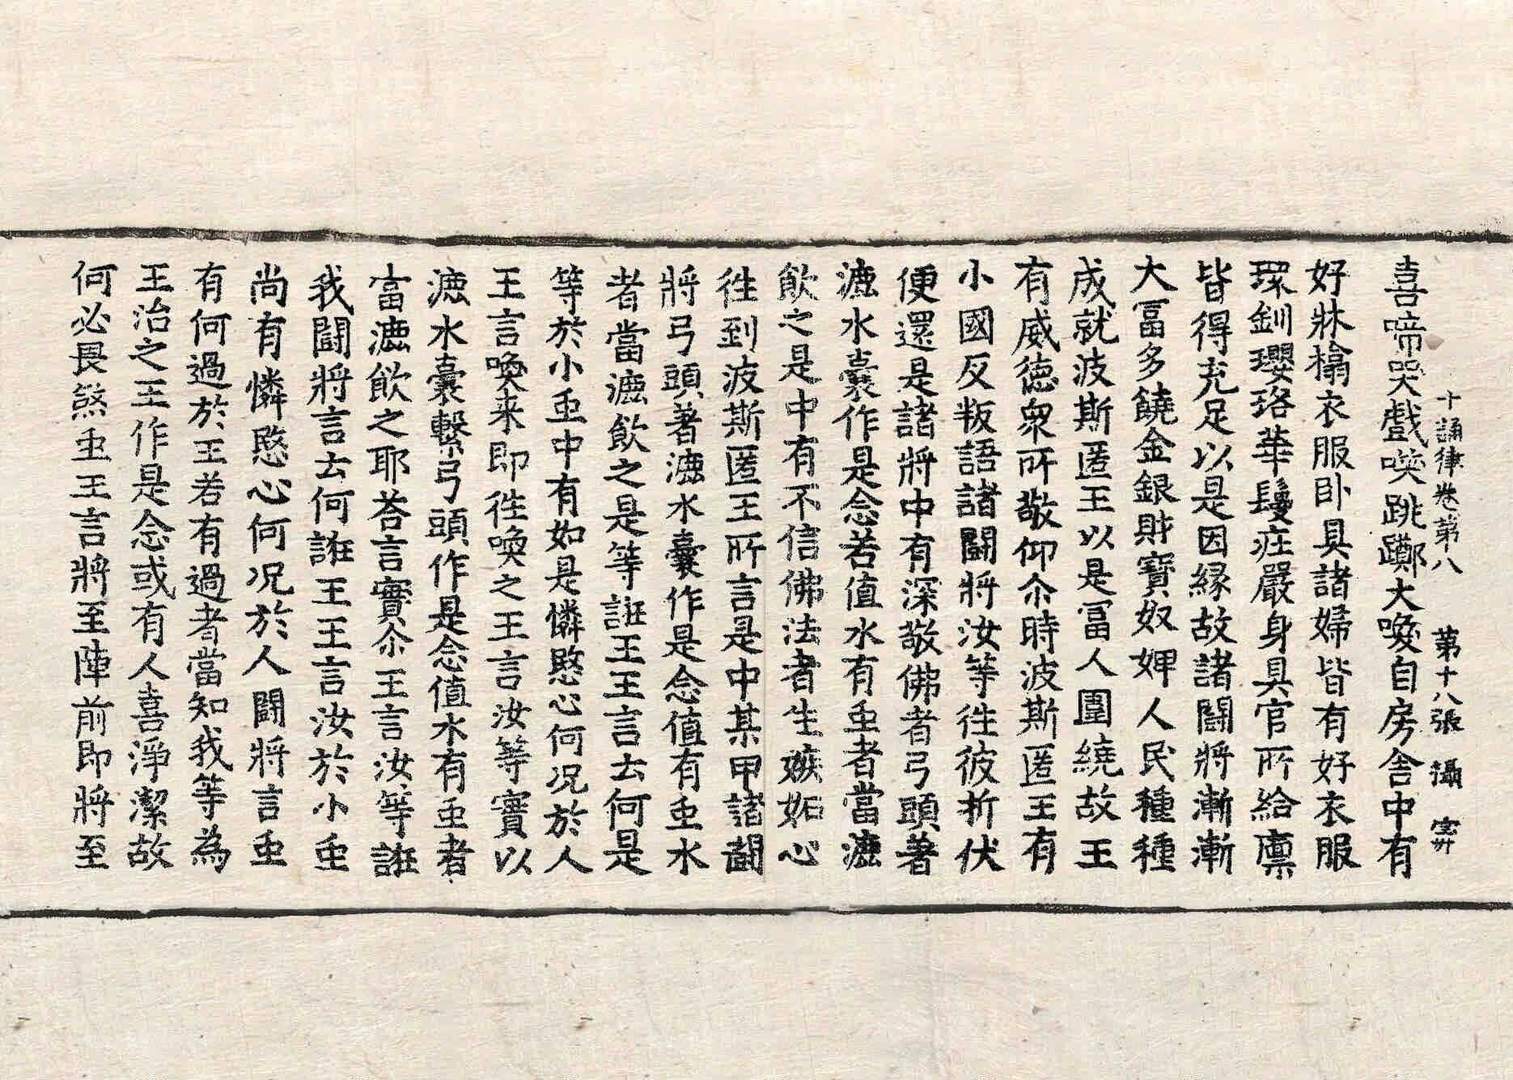 十誦律卷第八 第十八張 攝
喜啼哭戲唤跳躑大喚自房舍中有
好牀榻衣服卧具諸婦皆有好衣服
環釧瓔珞華鬘莊嚴身具官所給廪
皆得充足以是因縁故諸鬪將漸漸
大冨多饒金銀財寶奴婢人民種種
成就波斯匿王以是冨人圍繞故王
有威徳衆所敬仰尒時波斯匿王有
小國反叛語諸鬪將汝等徃彼折伏
便還是諸將中有深敬佛者弓頭著
漉水囊作是念若值水有虫者當漉
飲之是中有不信佛法者生嫉妬心
徃到波斯匿王所言是中某甲諸鬪
將弓頭著漉水囊作是念值有虫水
者當漉飲之是等誑王王言云何是
等於小虫中有如是憐愍心何况於人
王言喚来即徃喚之王言汝等實以
漉水囊繫弓頭作是念值水有虫者
當漉飲之耶荅言實尒王言汝等誑
我鬪將言云何誑王王言汝於小虫
尚有憐愍心何况於人鬪將言虫
有何過於王若有過者當知我等為
王治之王作是念或有人喜淨潔故
何必畏煞虫王言將至陣前即將至